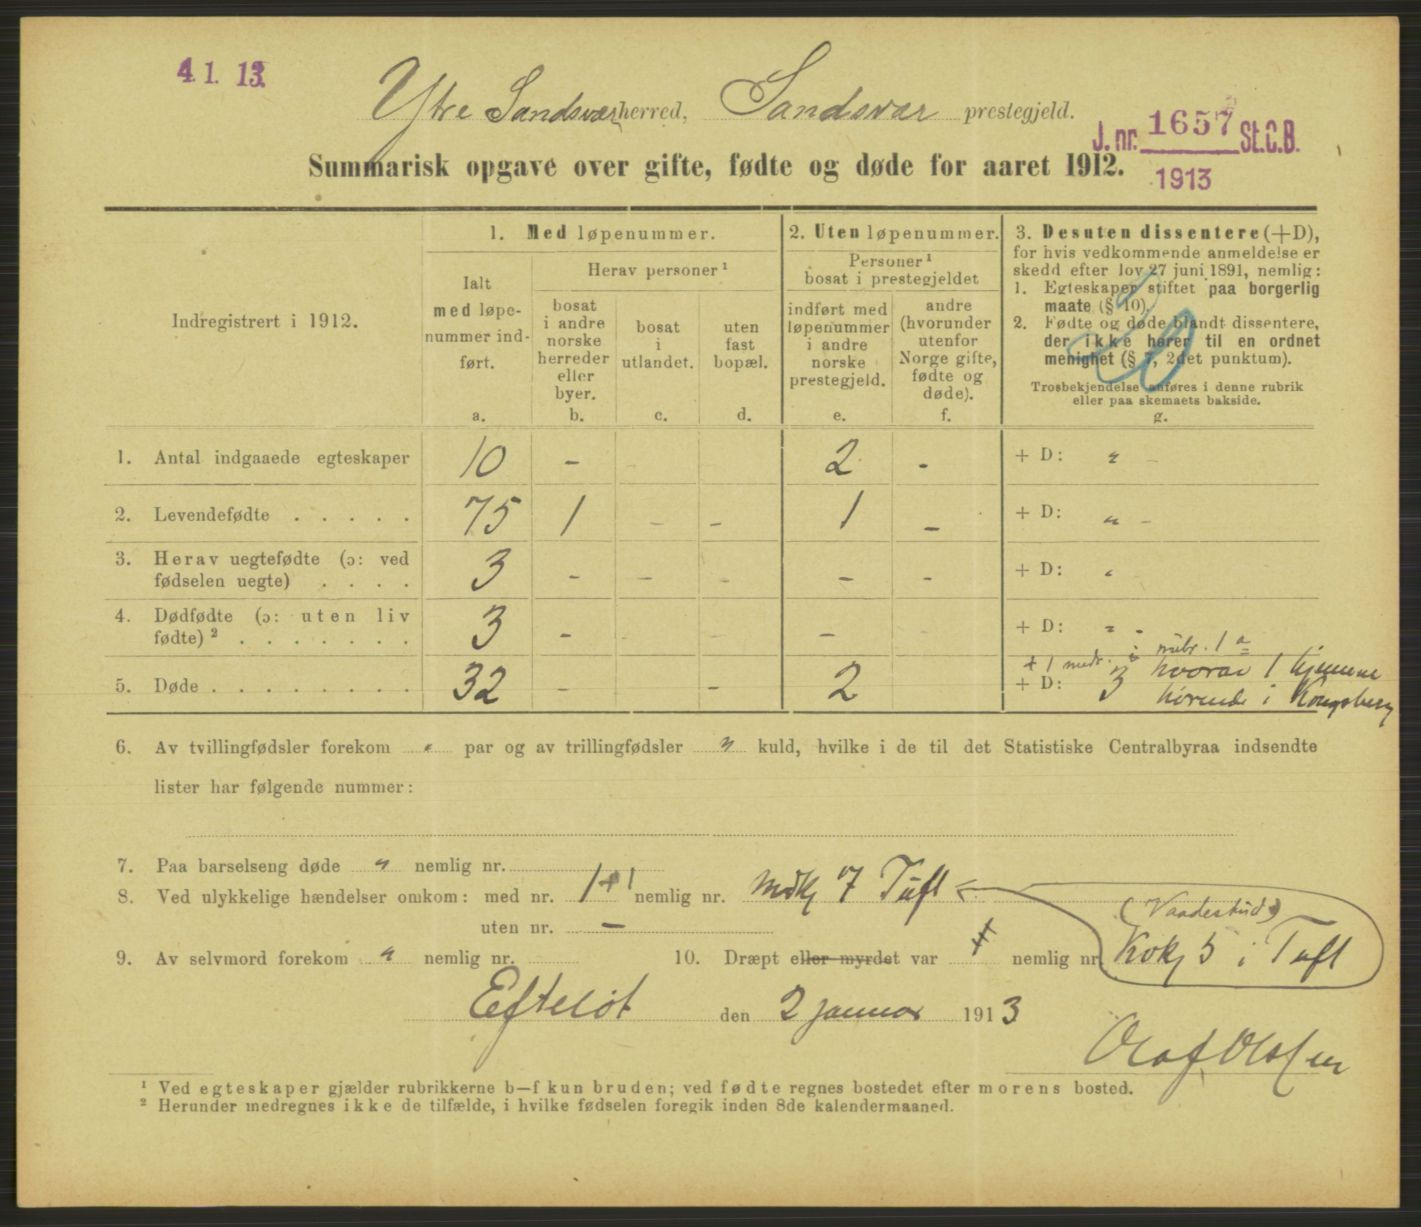 41. 13
Ytre Sandsvær herred, Sandsvær prestegjeld.
J. nr. 1657 St.C.B.
1913
Summarisk opgave over gifte, fødte og døde for aaret 1912.
Indregistrert i 1912.
1. Med løpenummer.
Ialt med løpenummer indført.
a.
Herav personer ¹
bosat i andre norske herreder eller byer.
b.
bosat i utlandet.
c.
uten fast bopæl.
d.
2. Uten løpenummer.
Personer ¹ bosat i prestegjeldet
indført med løpenummer i andre norske prestegjeld.
e.
andre (hvorunder utenfor Norge gifte, fødte og døde).
f.
3. Desuten dissentere (+D),
for hvis vedkommende anmeldelse er
skedd efter lov 27 juni 1891, nemlig:
1. Egteskaper stiftet paa borgerlig
maate (§ 10).
2. Fødte og døde blandt dissentere,
der ikke hører til en ordnet
menighet (§ 7, 2det punktum).
Trosbekjendelse anføres i denne rubrik
eller paa skemaets bakside.
g.
1. Antal indgaaede egteskaper 10 - 2 - + D: „ -
2. Levendefødte . . . . . 75 1 - - 1 - + D: „ -
3. Herav uegtefødte (ɔ: ved
fødselen uegte) . . . . 3 - - - - - + D: „
4. Dødfødte (ɔ: uten liv
fødte) ² . . . . . . . 3 - - + D: „ -
+ 1 medr. i rubr. 1 a
5. Døde . . . . . . . . . 32 - - 2 + D: 3 hvorav 1 hjemme
hørende i Kongsberg
6. Av tvillingfødsler forekom „ par og av trillingfødsler „ kuld, hvilke i de til det Statistiske Centralbyraa indsendte
lister har følgende nummer:
7. Paa barselseng døde „ nemlig nr.
8. Ved ulykkelige hændelser omkom: med nr. 1+1 nemlig nr. mdkj 7 Tuft
uten nr. -
(Vaadeskud)
9. Av selvmord forekom „ nemlig nr. 10. Dræpt eller myrdet var 1 nemlig nr. Kvkj 5 i Tuft
Efteløt den 2 januar 1913
Olaf Olsen
¹ Ved egteskaper gjælder rubrikkerne b—f kun bruden; ved fødte regnes bostedet efter morens bosted.
² Herunder medregnes ikke de tilfælde, i hvilke fødselen foregik inden 8de kalendermaaned.